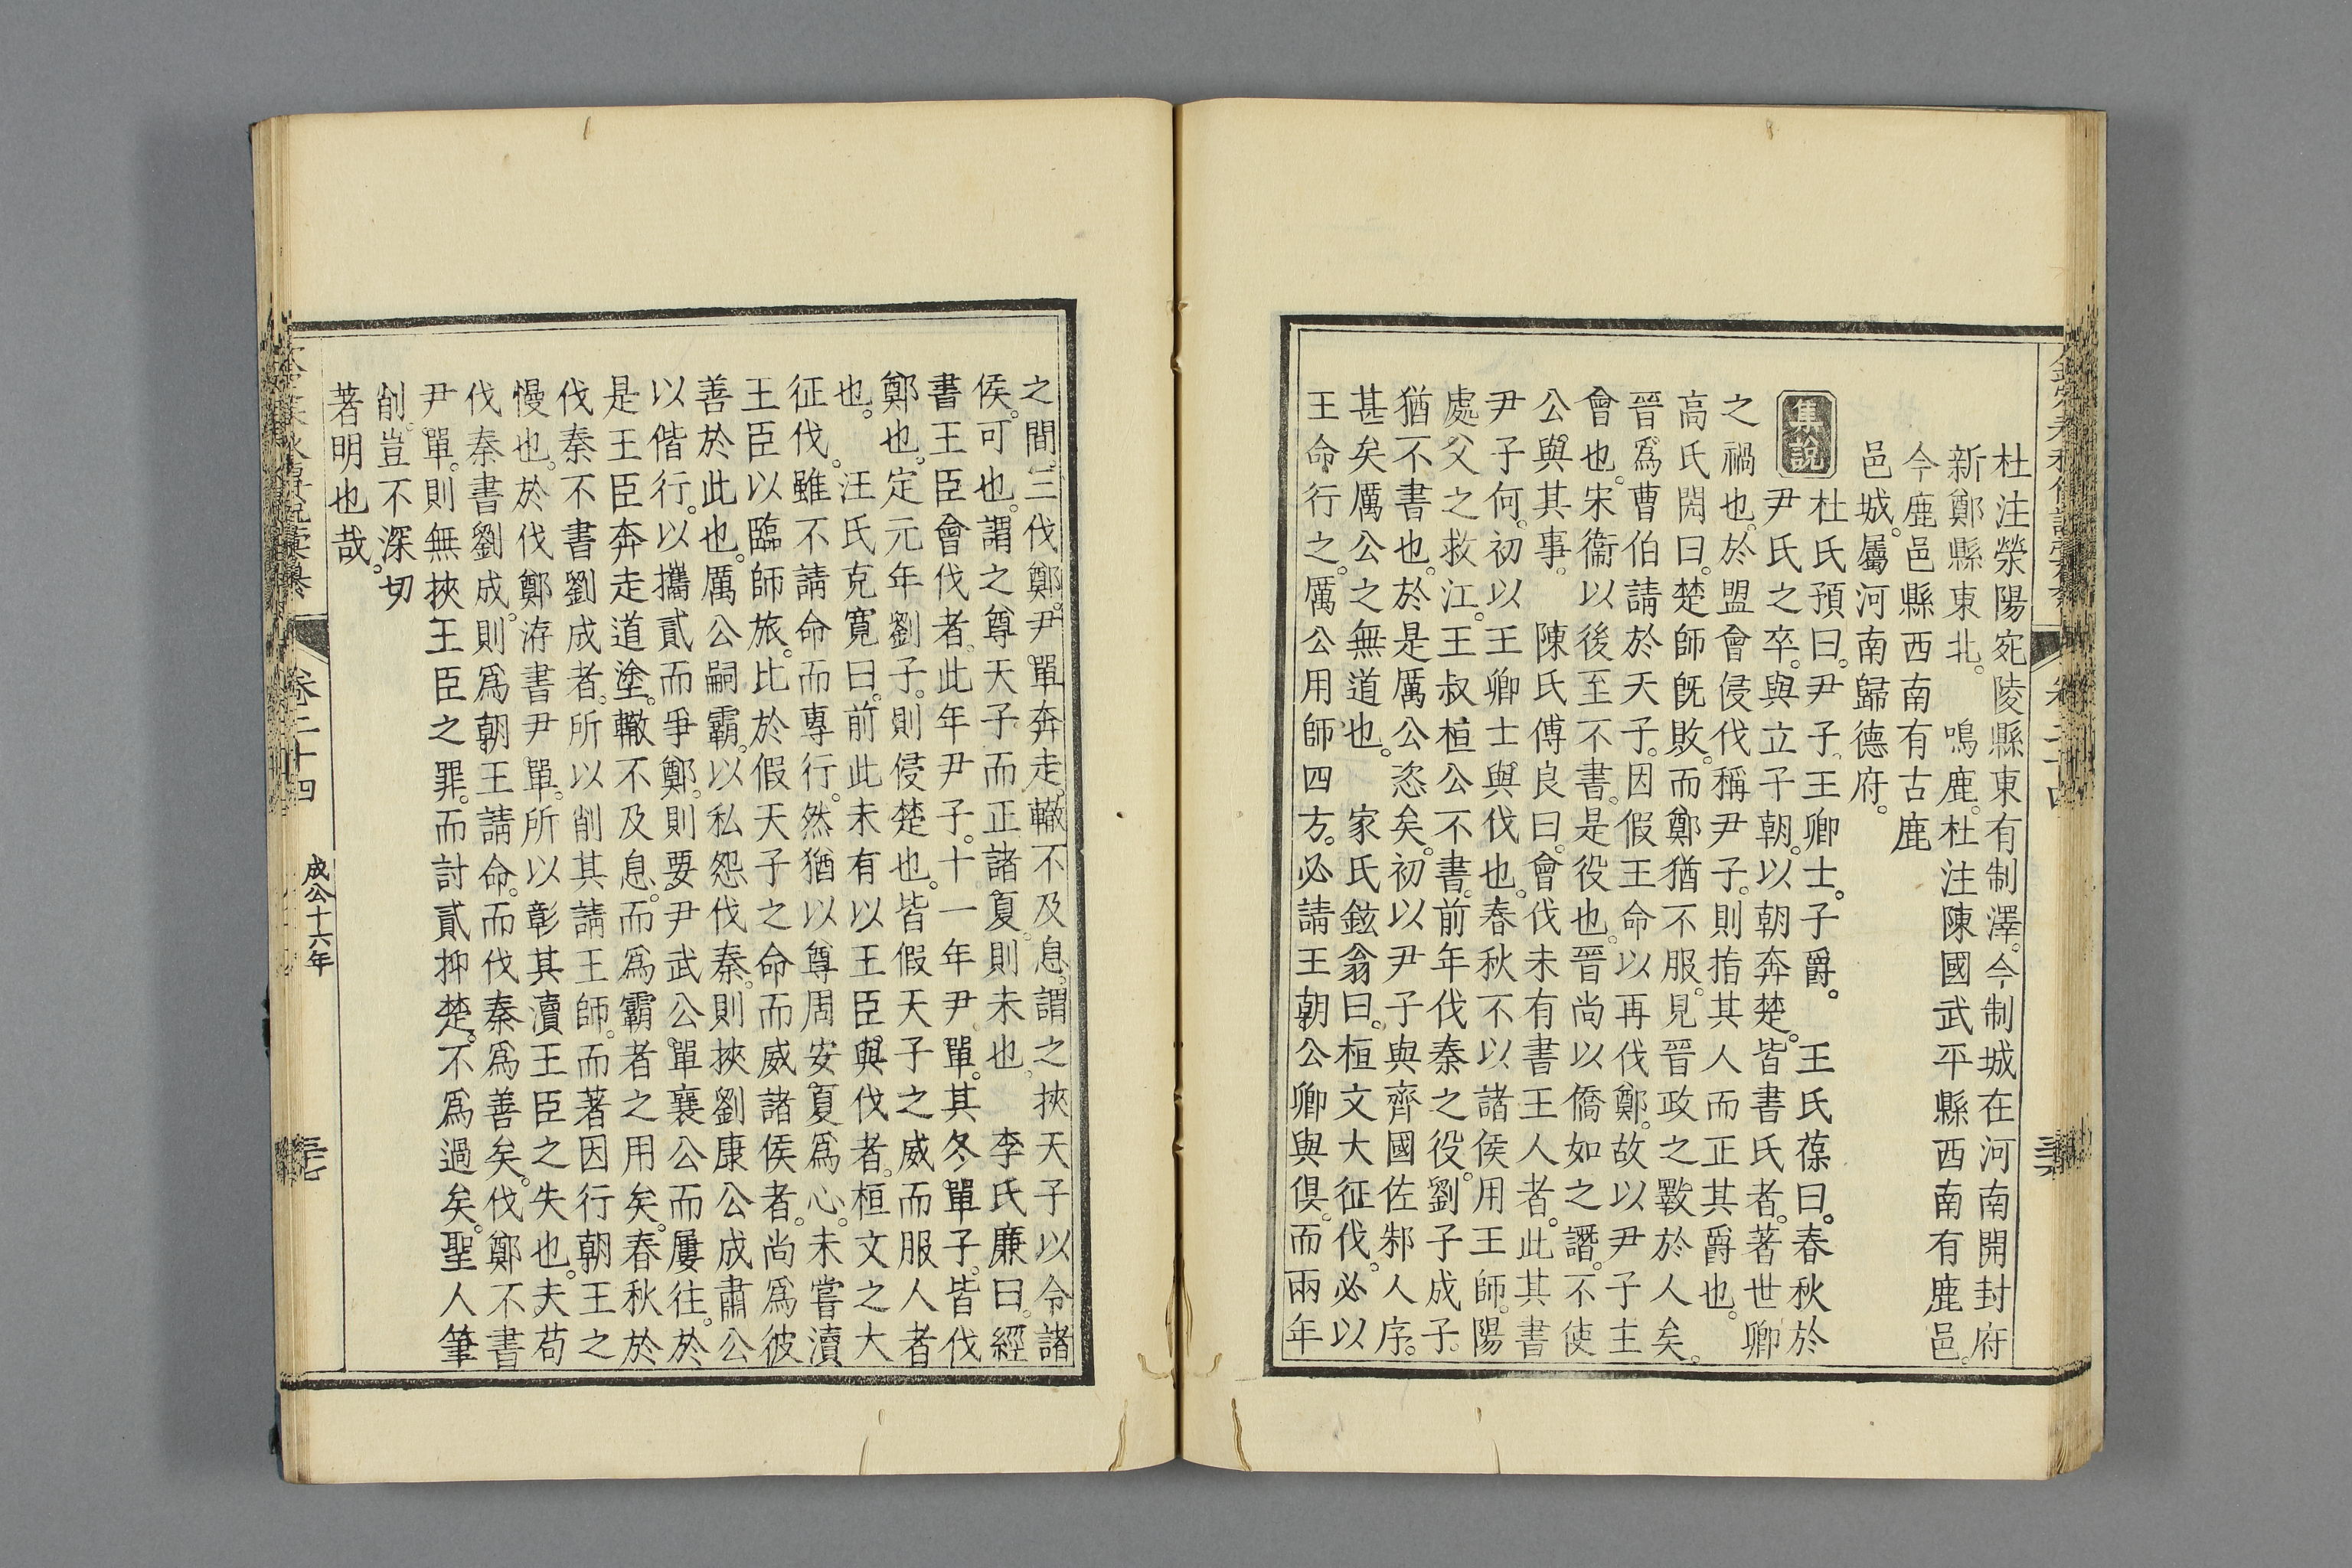 杜注滎陽宛陵縣東有制澤。今制城在河南開封府
新鄭縣東北。 鳴鹿。杜注陳國武平縣西南有鹿邑。
今鹿邑縣西南有古鹿
邑城。屬河南歸德府。
集說
杜氏預曰。尹子王卿士。子爵。 王氏葆曰。春秋於
尹氏之卒。與立子朝。以朝奔楚。皆書氏者。著世卿
之禍也。於盟會侵伐稱尹子。則指其人而正其爵也。
高氏閌曰。楚師既敗。而鄭猶不服。見晉政之斁於人矣。
晉爲曹伯請於天子。因假王命以再伐鄭。故以尹子主
會也。宋衞以後至不書。是役也。晉尚以僑如之譖。不使
公與其事。 陳氏傅良曰。會伐未有書王人者。此其書
尹子何。初以王卿士與伐也。春秋不以諸侯用王師。陽
處父之救江。王叔桓公不書。前年伐秦之役。劉子成子。
猶不書也。於是厲公恣矣。初以尹子與齊國佐邾人序。
甚矣厲公之無道也。 家氏鉉翁曰。桓文大征伐。必以
王命行之。厲公用師四方。必請王朝公卿與俱。而兩年
之間。三伐鄭。尹單奔走。轍不及息。謂之挾天子以令諸
侯。可也。謂之尊天子而正諸夏。則未也。 李氏廉曰。經
書王臣會伐者。此年尹子。十一年尹單。其冬單子。皆伐
鄭也。定元年劉子。則侵楚也。皆假天子之威而服人者
也。 汪氏克寬曰。前此未有以王臣與伐者。桓文之大
征伐。雖不請命而專行。然猶以尊周安夏爲心。未嘗瀆
王臣以臨師旅。比於假天子之命而威諸侯者。尚爲彼
善於此也。厲公嗣霸。以私怨伐秦。則挾劉康公成肅公
以偕行。以攜貳而爭鄭。則要尹武公單襄公而屢往。於
是王臣奔走道塗。轍不及息。而爲霸者之用矣。春秋於
伐秦不書劉成者。所以削其請王師。而著因行朝王之
慢也。於伐鄭洊書尹單。所以彰其瀆王臣之失也。夫苟
伐秦書劉成。則爲朝王請命。而伐秦爲善矣。伐鄭不書
尹單。則無挾王臣之罪。而討貳抑楚。不爲過矣。聖人筆
削。豈不深切
著明也哉。
卷二十四
成公十六年
三七